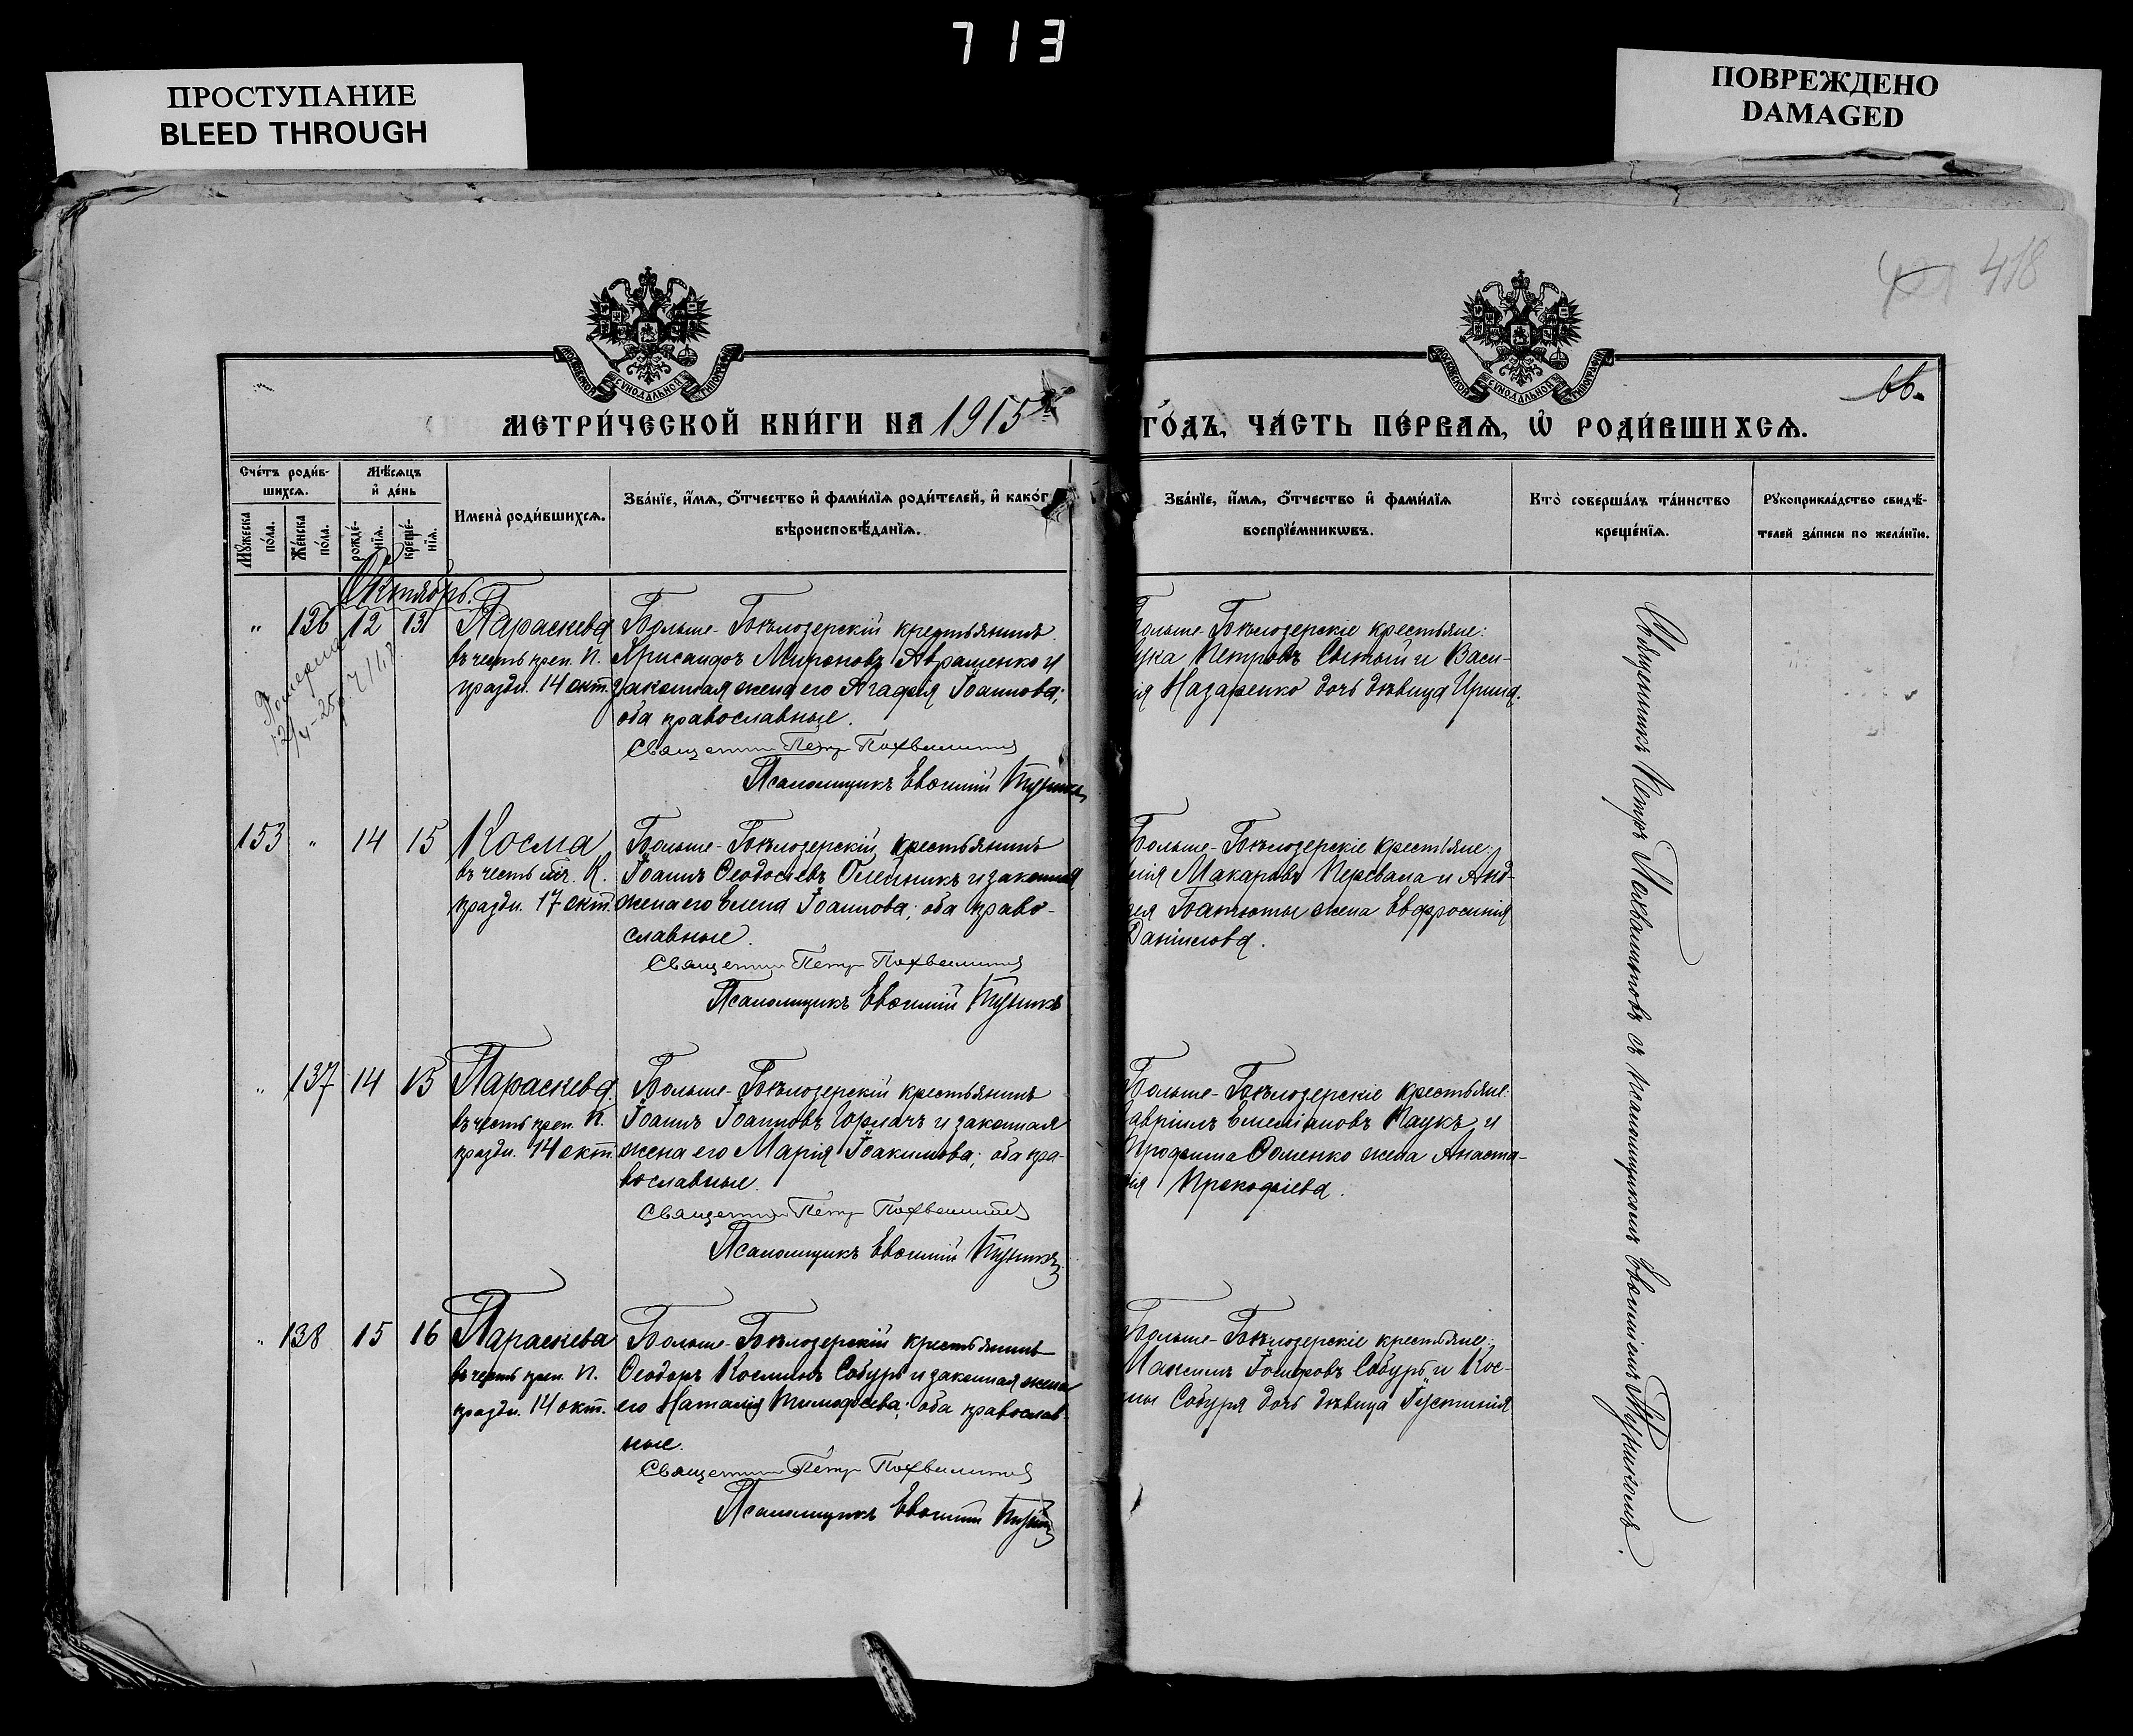 713
ПРОСТУПАНИЕ
BLEED THROUGH
ПОВРЕЖДЕНО
DAMAGED
418
66.
МЕТРИ́ЧЕСКОЙ КНИ́ГИ НА 1915
ГО́ДЪ, ЧА́СТЬ ПЕ́РВАѦ, Ѡ҆ РОДИ́ВШИХСѦ.
Сче́тъ роди́в-
шихсѧ.
Мѣ́сѧцъ
и҆ де́нь
Мꙋ́жеска по́ла.
Же́нска по́ла.
рожде́-
нїѧ.
креще́-
нїѧ.
Имена̀ роди́вшихсѧ.
Зва́нїе, и҆́мѧ, о҆́тчество и҆ фами́лїѧ роди́телей, и҆ како́г
вѣроисповѣ́данїѧ.
Зва́нїе, и҆́мѧ, о҆́тчество и҆ фами́лїѧ
воспрїе́мникѡвъ.
Кто̀ соверша́лъ та́инство
креще́нїѧ.
Рꙋкоприкла́дство свидѣ́-
телей за́писи по жела́нїю.
Октябрь.
" 136 12 13 Параскева
въ честь преп. П.
праздн. 14 окт.
Больше-Бѣлозерскій крестьянинъ
Хрисанфъ Мироновъ Авраменко и
законная жена его Агафія Іоаннова;
оба православные.
Священник Петр Похвалитов
Псаломщикъ Евѳимій
Больше-Бѣлозерскіе крестьяне:
ука Петровъ Сытый и Васи-
ія Назаренко дочь дѣвица Ирина.
153 " 14 15 Косма
въ честь мч. К.
праздн. 17 окт.
Больше-Бѣлозерскій крестьянинъ
Іоаннъ Ѳеодосіевъ Олейникъ и законная
жена его Елена Іоаннова; оба право-
славные.
Священник Петр Похвалитов
Псаломщикъ Евѳимій
Больше-Бѣлозерскіе крестьяне:
Макаровъ Перевала и Анд-
рея жена Евфросинія
Даніилова.
" 137 14 15 Параскева
въ честь преп. П.
праздн. 14 окт.
Больше-Бѣлозерскій крестьянинъ
Іоаннъ Іоанновъ Горлачъ и законная
жена его Марія Іоакимова; оба пра-
вославные.
Священник Петр Похвалитов
Псаломщикъ Евѳимій
Больше-Бѣлозерскіе крестьяне:
авріилъ Емеліановъ Паукъ и
Трофима Ѳоменко жена Анаста-
сія Прокофіева.
" 138 15 16 Параскева
въ честь преп. П.
праздн. 14 окт.
Больше-Бѣлозерскій крестьянинъ
Ѳеодоръ Косминъ Собуръ и законная жена
его Наталія Тимофеева; оба православ-
ные.
Священник Петр Похвалитов
Псаломщикъ Евѳимій
Больше-Бѣлозерскіе крестьяне:
Максимъ Собуръ и Кос-
мы Собуря дочь дѣвица Іустинія
Священникъ Петръ Похвалитовъ съ псаломщикомъ Евѳиміемъ